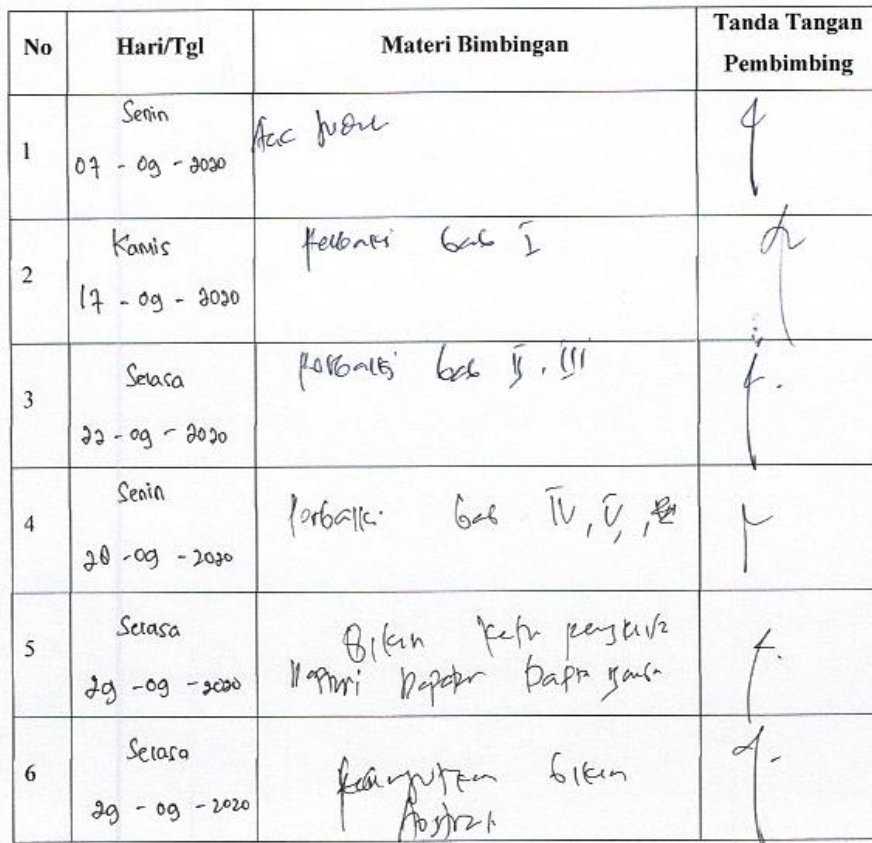 No Hari/Tgl Materi Bimbingan Tanda Tangan
Pembimbing
1 Senin
07 - 09 - 2020
Acc
2 Kamis
17 - 09 - 2020
Perbaiki bab I
3 Selasa
22 - 09 - 2020
Perbaiki bab II, III
4 Senin
28 - 09 - 2020
Perbaiki bab IV, V,
5 Selasa
29 - 09 - 2020
Bikin kata
6 Selasa
29 - 09 - 2020
bikin
Abstrak